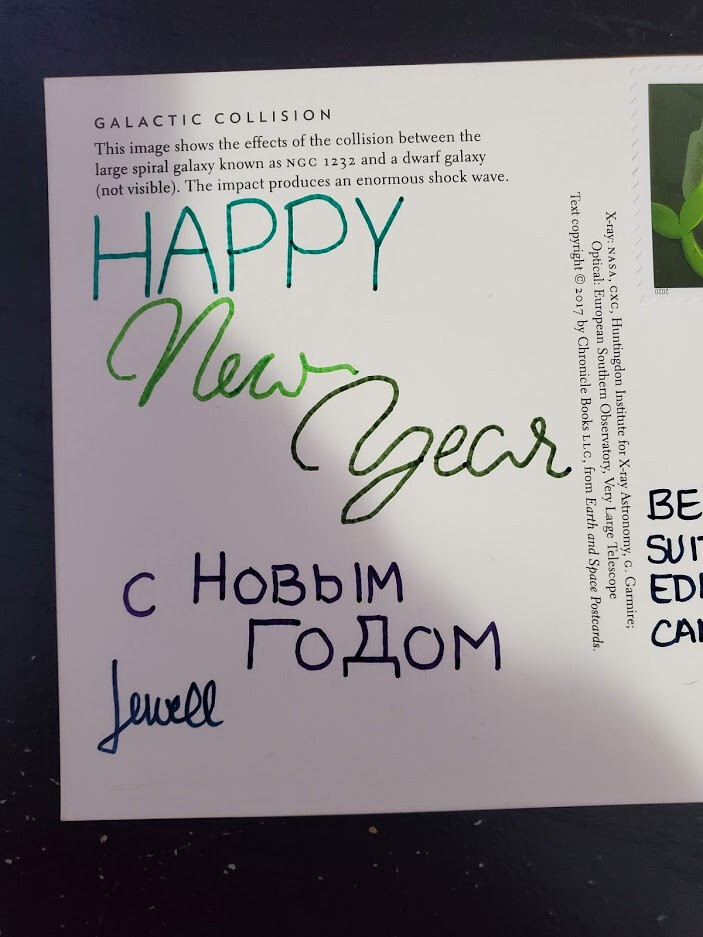 GALACTIC COLLISION
This image shows the effects of the collision between the
large spiral galaxy known as NGC 1232 and a dwarf galaxy
(not visible). The impact produces an enormous shock wave.
HAPPY
New
Year
С НОВЫМ
ГОДОМ
Jewell
X-ray: NASA, CXC, Huntingdon Institute for X-ray Astronomy, G. Garmire;
Optical: European Southern Observatory, Very Large Telescope
Text copyright © 2017 by Chronicle Books LLC, from Earth and Space Postcards.
2020
BE
SUIT
EDI
CAN